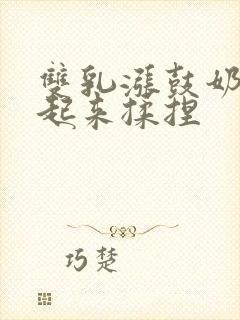 雙乳漲鼓奶
起来揉捏
巧楚